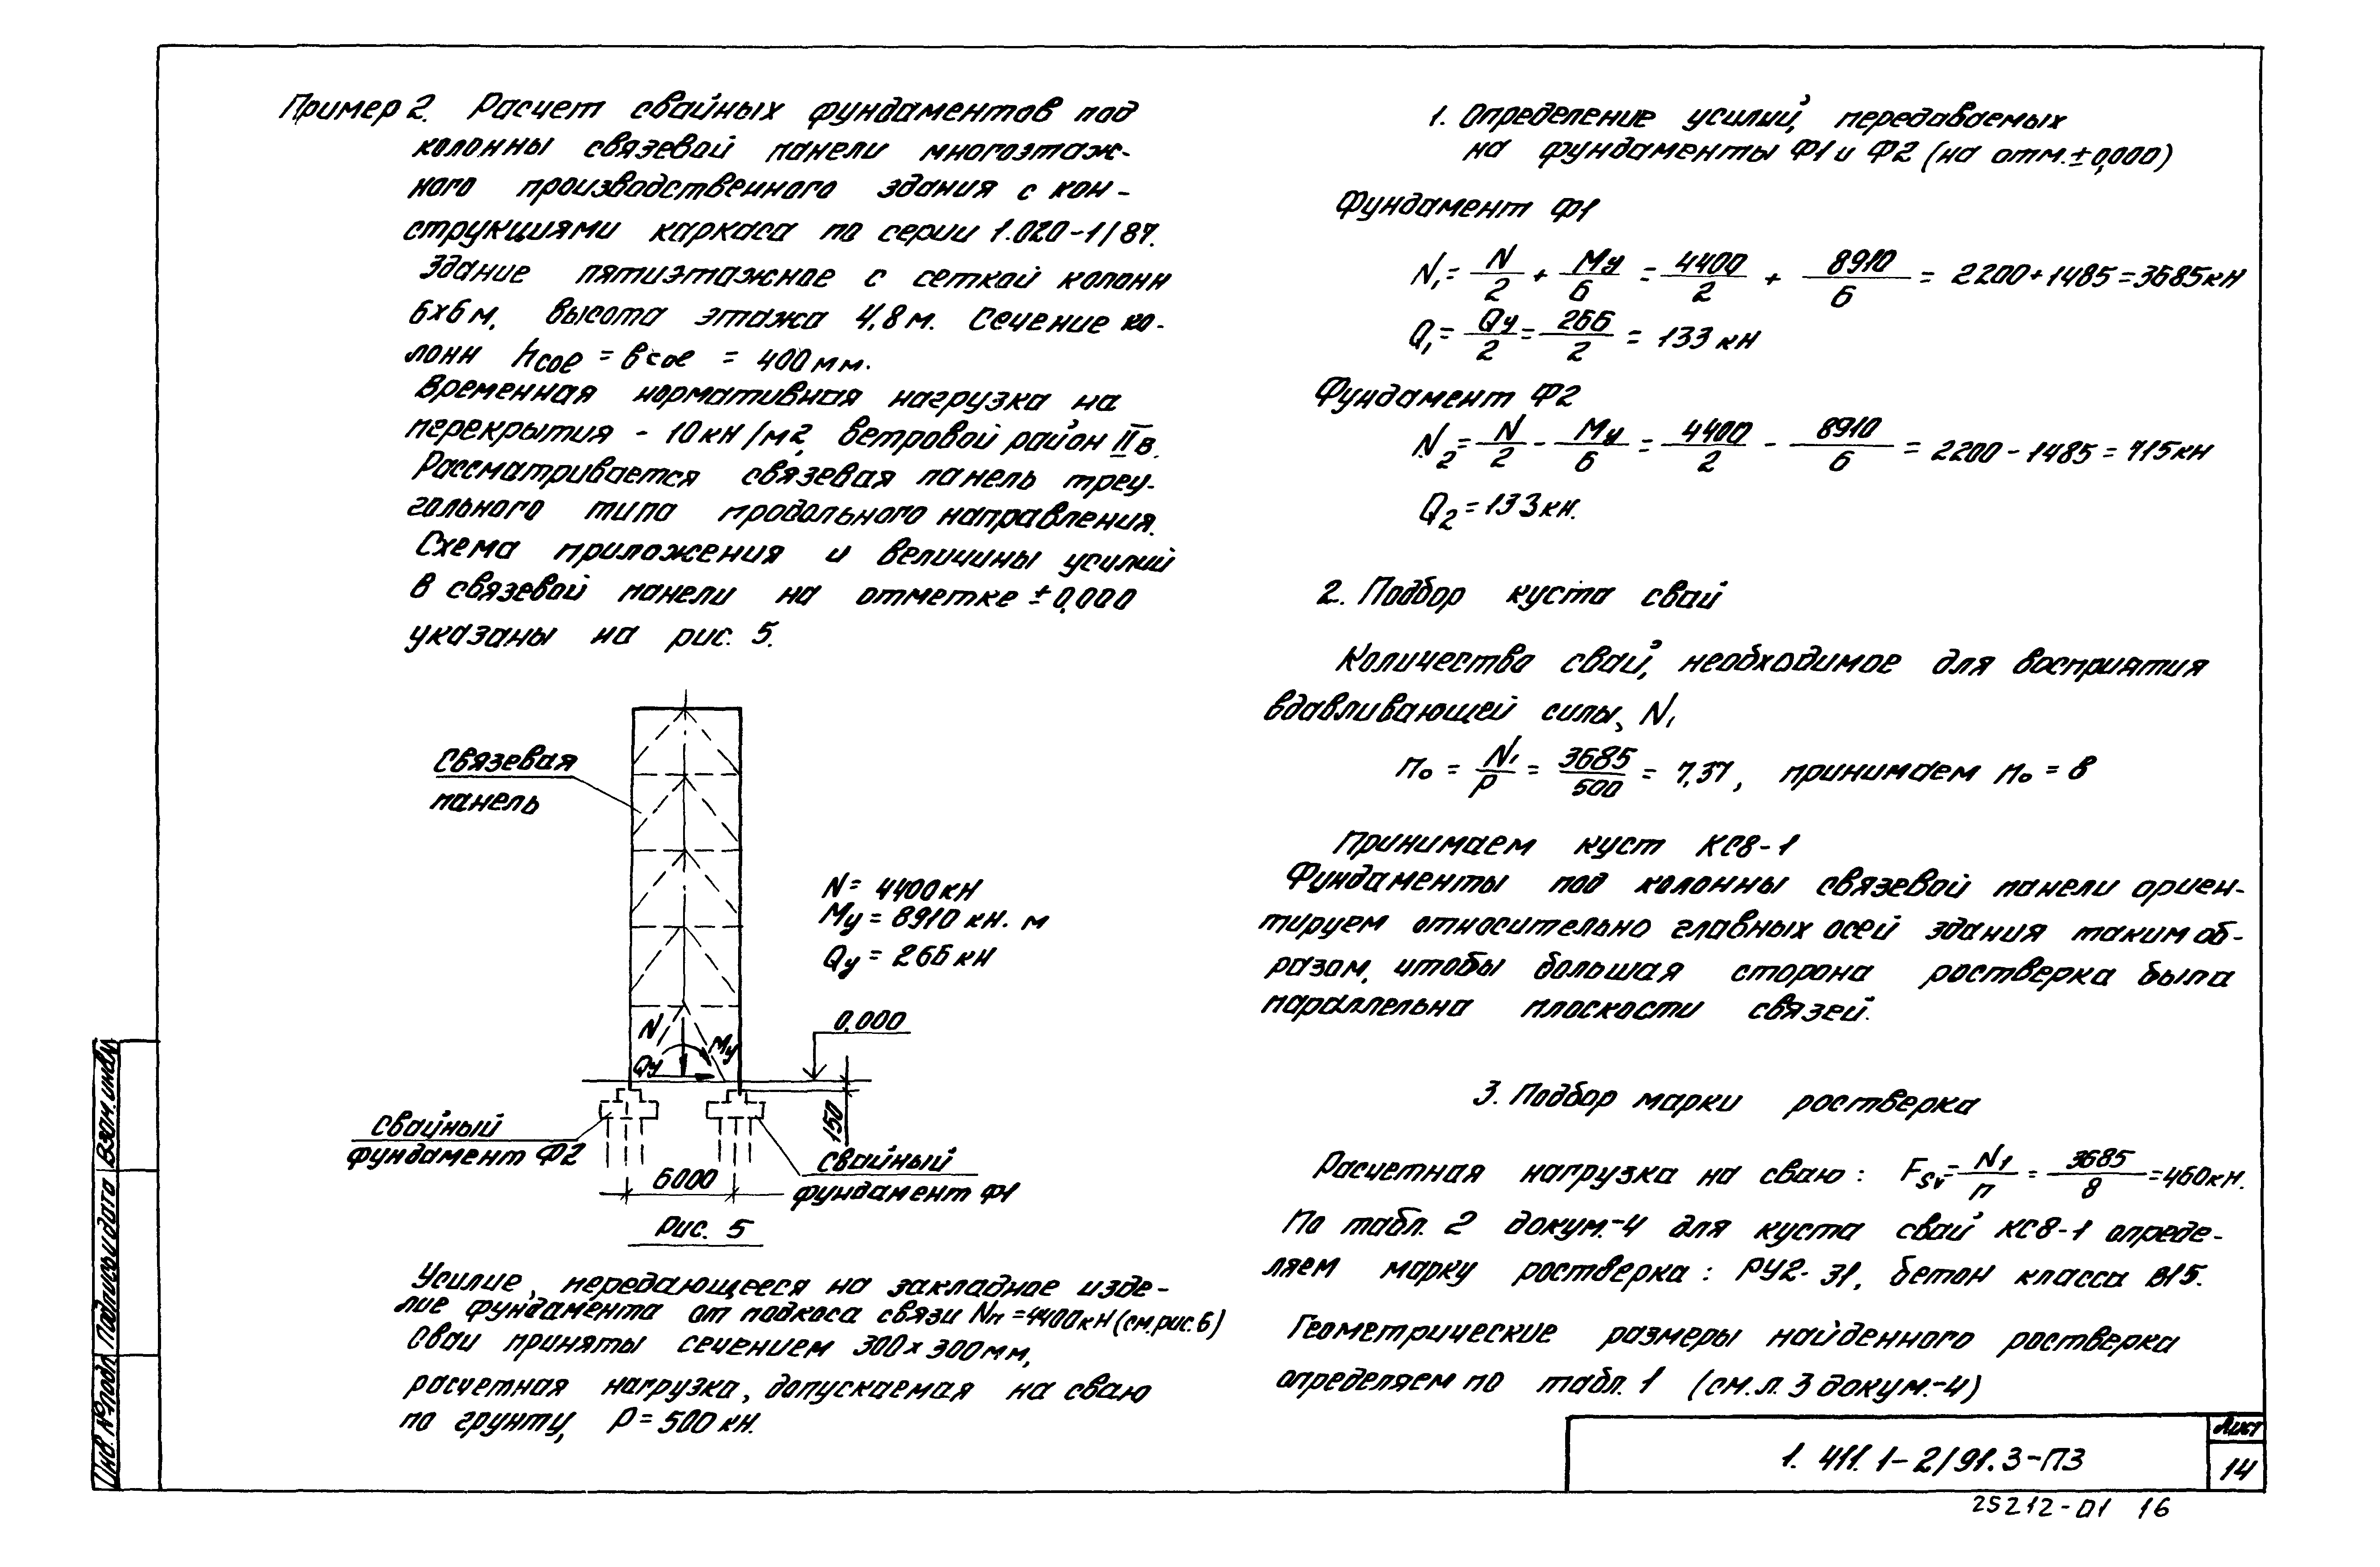 Пример 2. Расчет свайных фундаментов под
колонны связевой панели многоэтаж-
ного производственного здания с кон-
струкциями каркаса по серии 1.020-1/87.
Здание пятиэтажное с сеткой колонн
6х6 м, высота этажа 4,8 м. Сечение ко-
лонн hcoe = bcoe = 400 мм.
Временная нормативная нагрузка на
перекрытия - 10 кН/м2, ветровой район IIв.
Рассматривается связевая панель треу-
гольного типа продольного направления.
Схема приложения и величины усилий
в связевой панели на отметке ±0,000
указаны на рис. 5.
Связевая
панель
N = 4400 кН
My = 8910 кН. м
Qy = 266 кН
0,000
N
My
Qy
150
Свайный
фундамент Ф2
6000
Свайный
фундамент Ф1
Рис. 5
Усилие, передающееся на закладное изде-
лие фундамента от подкоса связи Nп = 4400 кН (см. рис. 6)
Сваи приняты сечением 300х300 мм,
расчетная нагрузка, допускаемая на сваю
по грунту, P = 500 кН.
1. Определение усилий, передаваемых
на фундаменты Ф1 и Ф2 (на отм. ±0,000)
Фундамент Ф1
N1 = N/2 + My/6 = 4400/2 + 8910/6 = 2200 + 1485 = 3685 кН
Q1 = Qy/2 = 266/2 = 133 кН
Фундамент Ф2
N2 = N/2 - My/6 = 4400/2 - 8910/6 = 2200 - 1485 = 715 кН
Q2 = 133 кН.
2. Подбор куста свай
Количество свай, необходимое для восприятия
вдавливающей силы, N1
n0 = N1/P = 3685/500 = 7,37, принимаем n0 = 8
Принимаем куст КС8-1
Фундаменты под колонны связевой панели ориен-
тируем относительно главных осей здания таким об-
разом, чтобы большая сторона ростверка была
параллельна плоскости связей.
3. Подбор марки ростверка
Расчетная нагрузка на сваю: Fsv = N1/n = 3685/8 = 460 кН.
По табл. 2 докум.-4 для куста свай КС8-1 опреде-
ляем марку ростверка: РУ2-31, бетон класса В15.
Геометрические размеры найденного ростверка
определяем по табл. 1 (см. л. 3 докум.-4)
1.411.1-2/91.3-ПЗ
Лист
14
25212-01 16
Инв. № подл. Подпись и дата Взам. инв. №